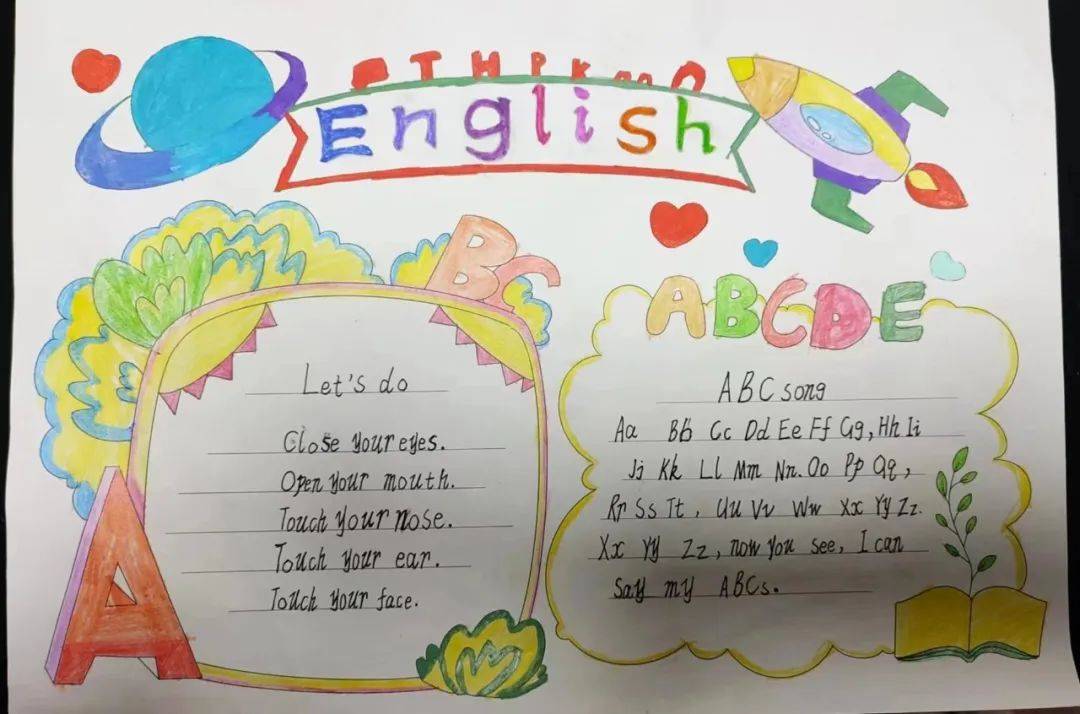 T H P K
English
BC
A
Let's do
Close your eyes.
Open your mouth.
Touch your nose.
Touch your ear.
Touch your face.
ABCDE
ABC song
Aa Bb Cc Dd Ee Ff Gg, Hh Ii
Jj Kk Ll Mm Nn. Oo Pp Qq,
Rr Ss Tt, Uu Vv Ww Xx Yy Zz.
Xx Yy Zz, now you see, I can
Say my ABCs.